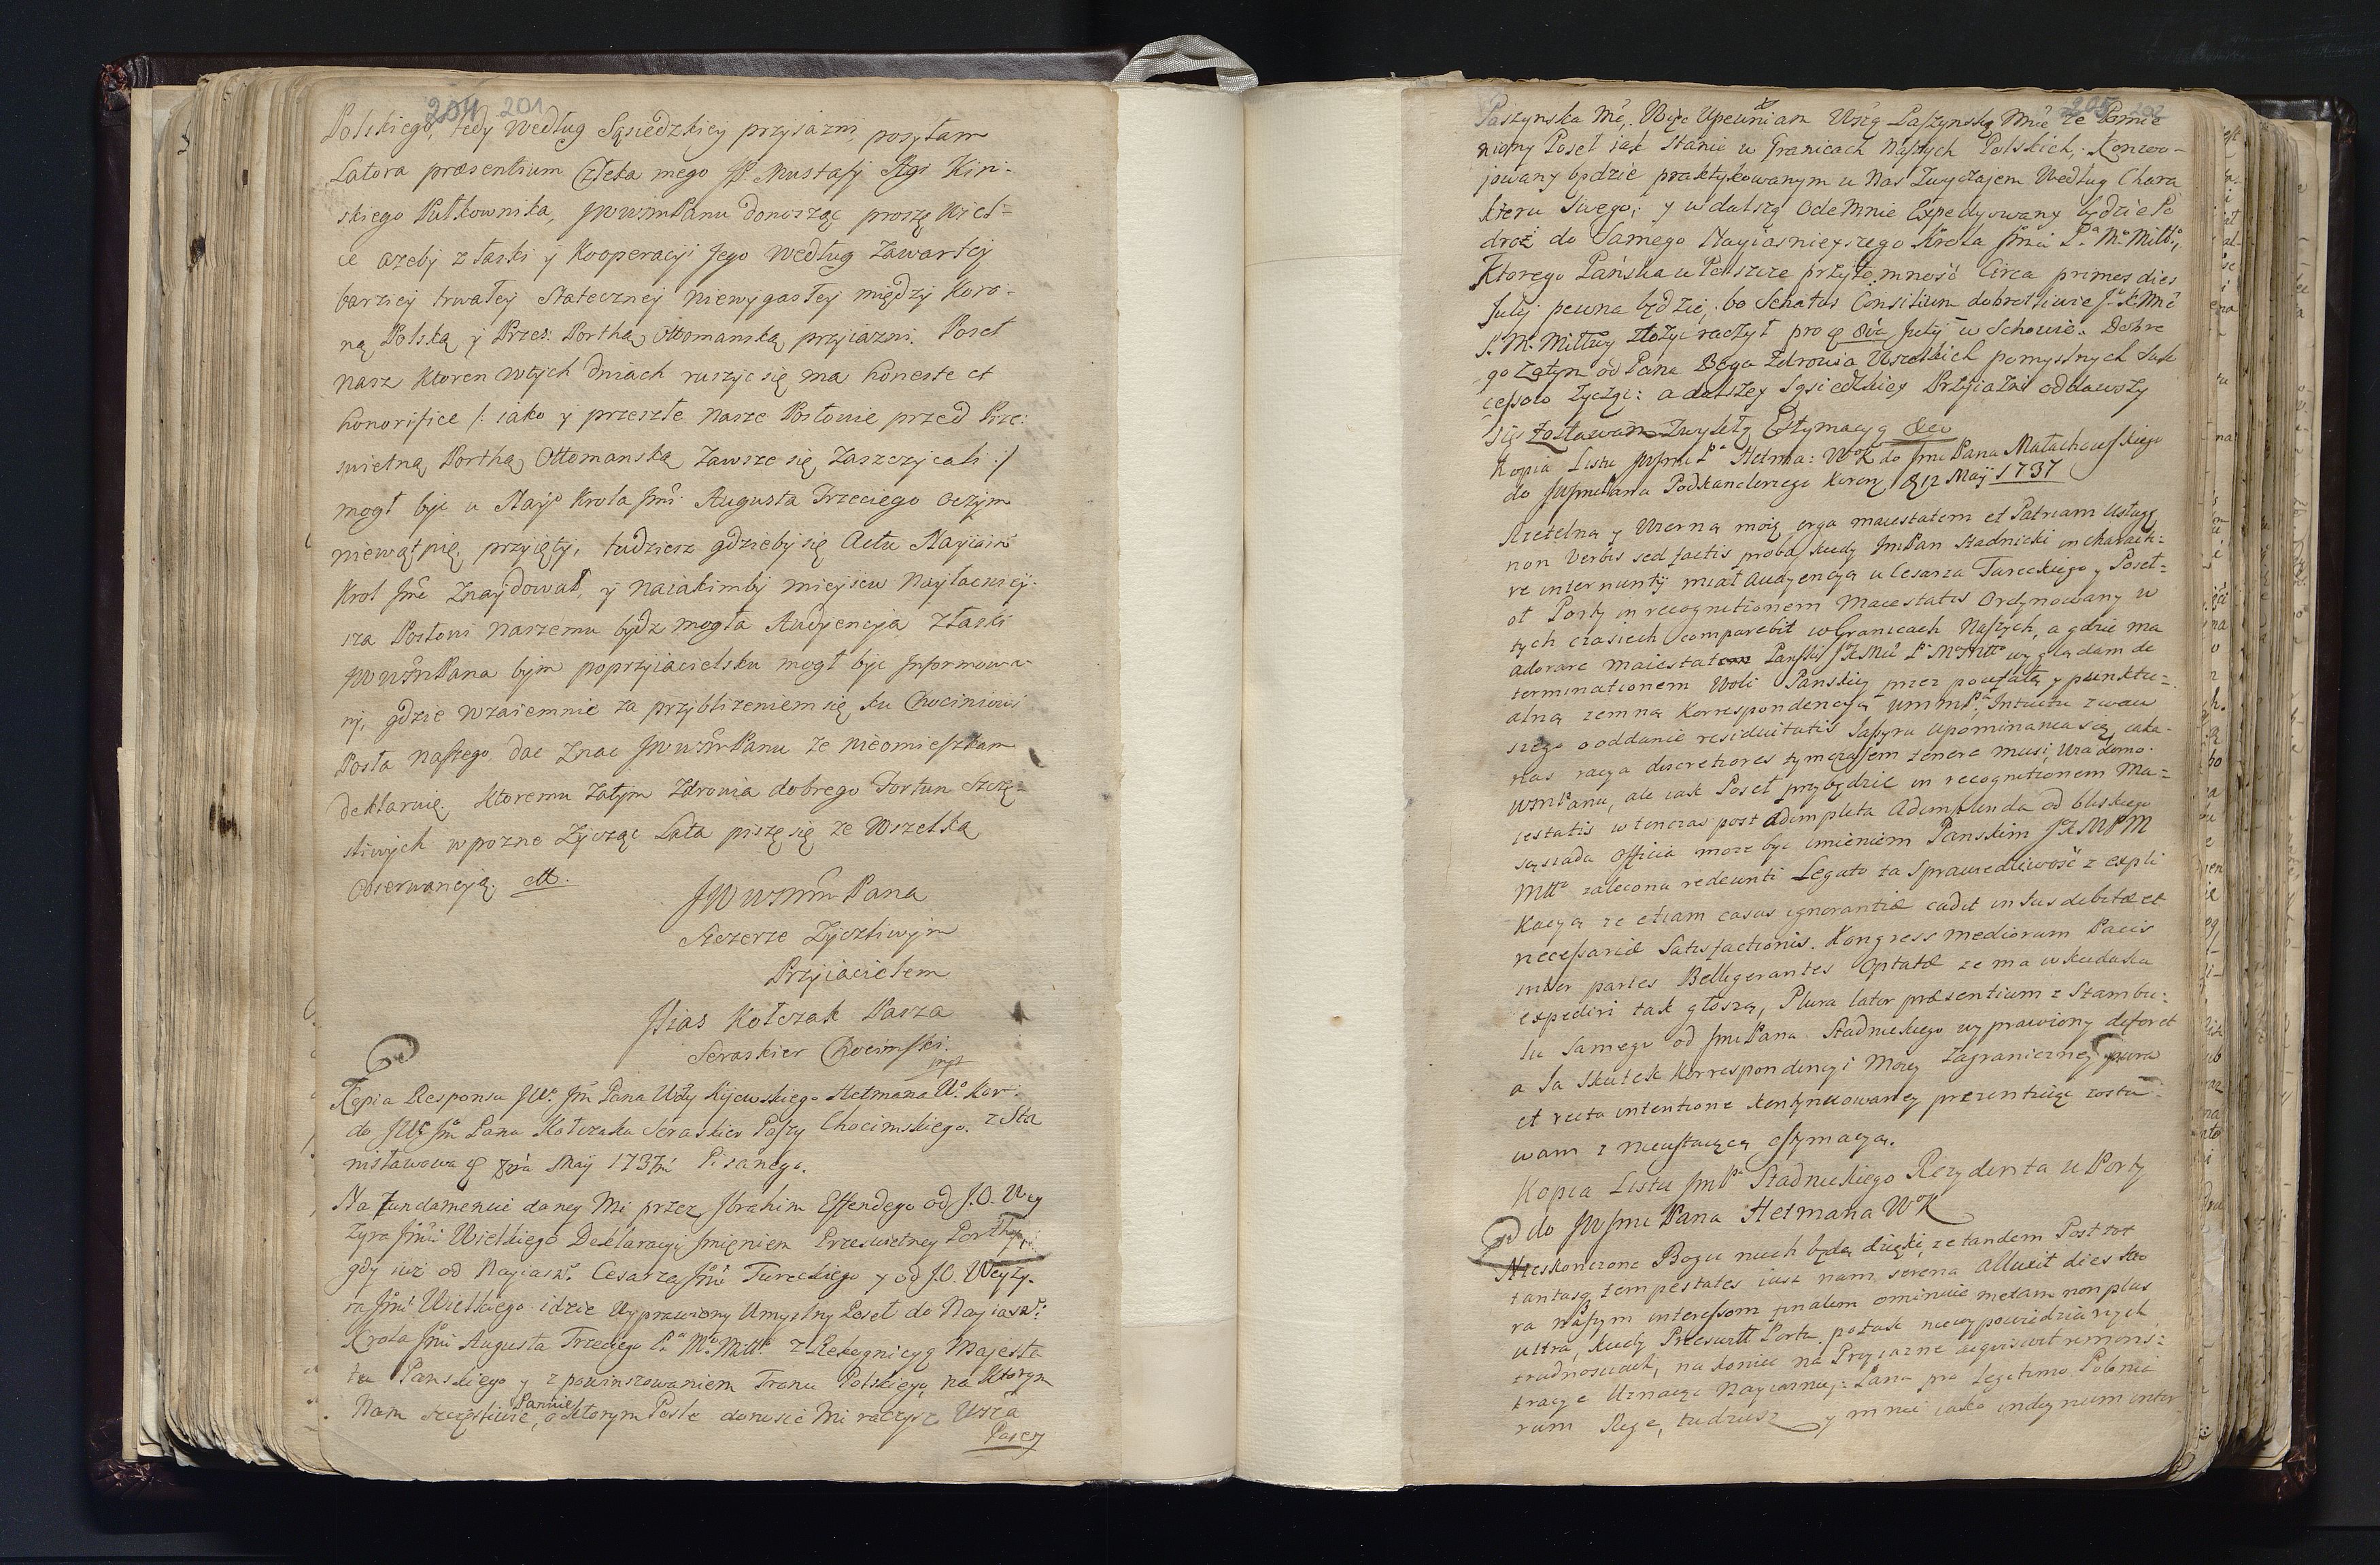 204 201
Polskiego, tedy według Sąsiedzkiey przyiazni, posyłam
Latora præsentium Człeka mego JP. Mustafy Agi Kiri-
skiego Pułkownika, JWWMPanu donosząc proszę wiel-
ce azeby z łaski y Kooperacyi Jego według zawartey
barziey trwałey Stateczney niewygasłey między Koro-
ną Polską y Przes: Porthą Ottomanską przyiazni. Poseł
nasz ktoren wtych dniach ruszyc się ma honeste et
honorifice /: iako y przeszłe nasze Posłowie przed Prze:
swietną Porthą Ottomanską zawsze się zaszczycali :/
mogł byc u Nayj Krola Jmci Augusta Trzeciego oczym
niewątpię przyięty, tudziesz gdzieby się Actu Nayiasn
Krol Jmć znaydował, y naiakimby mieyscu Nayłacniey-
sza Posłowi naszemu bydz mogła Audyencyja z łaski
JWWMPana bym poprzyiacielsku mogł byc Informowa-
ny, gdzie wzaiemnie za przyblizeniem się ku Chocimowi
Posła naszego dac znac JWWMPanu ze nieomieszkam
deklaruię. Ktoremu zatym zdrowia dobrego Fortun Szczę-
sliwych wpozne zycząc Lata piszę się ze Wszelką
Obserwancyą. ett.
JWWMM Pana
Szczerze Zyczliwym
Przyiacielem
Ilias Kołczak Pasza
Seraskier Chocimski.
mpr
Kopia Responsu JW. Jm Pana Wdy Kijowskiego Hetmana W. Kor:
do JW Jm Pana Kołczaka Seraskier Paszy Chocimskiego. z Sta
nisławowa Maij 1737 Pisanego.
Na fundamencie daney Mi przez Ibrahim Effendego od J.O. Wey
zyra Jmci Wielkiego Deklaracyi Imięniem Przeswietney Porthy,
gdy iuż od Nayiasn. Cesarza Jmci Tureckiego y od J.O. Weyzy-
ra Jmci Wielkiego idzie Wyprawiony Umyslny Poseł do Nayiasn:
Krola Jmci Augusta Trzeciego P. M. Miłł. z Rekognicyą Majesta
tu Panskiego y z powinszowaniem Tronu Polskiego, na ktorym
Nam szczęsliwie Panuie, o ktorym Posle donosić Mi raczysz Wsza
Paszy
205 202
Paszynska Mć, Więc Upewniam Wszą Paszynską Mć że Pomie
niony Poseł iak stanie w Granicach Naszych Polskich, Konwo-
jowany będzie praktykowanym u Nas zwyczajem według Chara
kteru Swego; y w dalszą odeMnie Expedyowany będzie Po
droż do Samego Nayiasnieyszego Krola Jmci P. M. Miłł.
Ktorego Pańska w Polszcze przytomność Circa primes dies
Julij pewna będzie; bo Senatus Consilium dobrotliwie J.K.Mć
P. M. Miłłwy złożyć raczył pro Julij w Schowie. Dobre
go zatym od Pana Boga Zdrowia Wszelkich pomyslnych Suk
cessow życzę: a dalszey Sąsiedzkiey Przyiazni oddawszy
się zostawam zwysełą Estymacyą &c
Kopia Listu JWJmci P. Hetma: WoK do JmciPana Małachowskiego
do JWJmciPana Podkanclerzego Koron: 12 Maij 1737
Rzetelną y Wierną moię erga maiestatem et Patriam Usługę
non verbis sed factis probo, kiedy JmPan Stadnicki in charak:
re internuntij miał Audyencyą u Cesarza Tureckiego y Poseł-
ot Porty in recognitionem Maiestatis Ordynowany w
tych czasiech comparebit w Granicach Naszych, a gdzie ma
adorare maiestatem Panski JKMci P. M. Mtto wyglądam de
terminationem Woli Panskiey przez poufałą y punktu-
alną zemną Korrespondencyą UmmP. Intuitu zwau
szego o oddanie residuitatis Sapyra upominania są, iaka
nas racya discretiores tymczasem tenere musi, wiadomo
WsmPanu, ale iak Poseł przybędzie in recognitionem Ma-
iestatis w tenczas post adimpleta Adimplenda od bliskiego
sąsiada Officia może byc imieniem Panskim JKMPM
Mtto zalecona redeunti Legato ta Sprawiedliwość z expli
kacyą ze etiam casus ignorantiæ cadit in Jus debitæ et
necessariæ Satisfactionis. Kongress mediorum Pacis
inter partes Belligerantes Optatæ ze ma w Kudaku
expediri tak głoszą, Plura lator præsentium z Stambu:
łu samego od JmciPana Stadnickiego wyprawiony deferet
a Ja skutek Korrespondencyi Moiey zagraniczney pura
et recta intentione kontynuowaney prezentuiąc zosta-
wam z nieustaiącą estymacyą.
Kopia Listu JmP. Stadnickiego Rezydenta u Porty
do JWJmci Pana Hetmana WoK
Nieskonczone Bogu niech będą dzięki, ze tandem Post tot
tantasq tempestates iusz nam serena alluxit dies kto
ra naszym interessom finalem ominuie metam non plus
ultra, kiedy Przeswitt Porta potak niewypowiedzianych
trudnosciach, na koniec na Przyiazne acquievit remons:
tracye Uznaiąc Nayiasniey: Pana pro Legitimo Poloniæ
rum Rege, tudziesz y mnie iako indignum inter